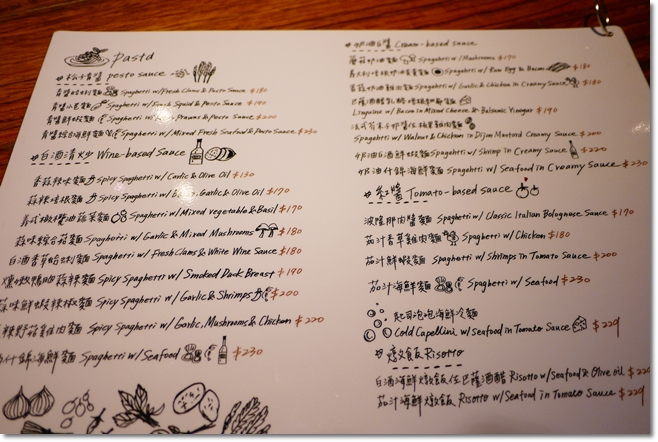 Pasta
松子青醬 pesto sauce
青醬蛤蜊麵 Spaghetti w/Fresh Clams & Pesto Sauce $180
青醬小卷麵 Spaghetti w/Fresh Squid & Pesto Sauce $190
青醬鮮蝦麵 Spaghetti w/ Prawns & Pesto Sauce $200
青醬綜合海鮮麵 Spaghetti w/Mixed Fresh Seafood & Pesto Sauce $230
白酒清炒 Wine-based Sauce
香蒜辣味麵 Spicy Spaghetti w/Garlic & Olive Oil $130
蒜辣培根麵 Spicy Spaghetti w/Bacon, Garlic & Olive Oil $170
義式橄欖油蔬菜麵 Spaghetti w/Mixed vegetable & Basil $170
蒜味綜合菇麵 Spaghetti w/Garlic & Mixed Mushrooms $180
白酒香草蛤蜊麵 Spaghetti w/Fresh Clams & White Wine Sauce $180
燻鴨胸蒜辣麵 Spicy Spaghetti w/Smoked Duck Breast $190
蒜味鮮蝦辣椒麵 Spicy Spaghetti w/Garlic & Shrimps $200
辣野菇雞肉麵 Spicy Spaghetti w/Garlic, Mushrooms & Chicken $220
什錦海鮮麵 Spaghetti w/Seafood $230
奶油白醬 Cream-based sauce
蘑菇奶油麵 Spaghetti w/Mushrooms $170
義大利培根奶油蛋黃麵 Spaghetti w/Raw Egg & Bacon $180
香蒜奶油雞肉麵 Spaghetti w/Garlic & Chicken in Creamy Sauce $180
Linguine w/Bacon in Mixed Cheese & Balsamic Vinegar $190
Spaghetti w/Walnut & Chicken in Dijon Mustard Creamy Sauce $200
奶油白酒鮮蝦麵 Spaghetti w/Shrimp in Creamy Sauce $220
奶油什錦海鮮麵 Spaghetti w/Seafood in Creamy Sauce $230
紅醬 Tomato-based sauce
波隆那肉醬麵 Spaghetti w/Classic Italian Bolognese Sauce $170
茄汁香草雞肉麵 Spaghetti w/Chicken $180
茄汁鮮蝦麵 Spaghetti w/Shrimps in Tomato Sauce $200
茄汁海鮮麵 Spaghetti w/Seafood $230
起司泡泡海鮮冷麵
Cold Capellini w/Seafood in Tomato Sauce $229
燉飯 Risotto
白酒海鮮燉飯佐巴薩米酒醋 Risotto w/Seafood & Olive oil
茄汁海鮮燉飯 Risotto w/Seafood in Tomato Sauce